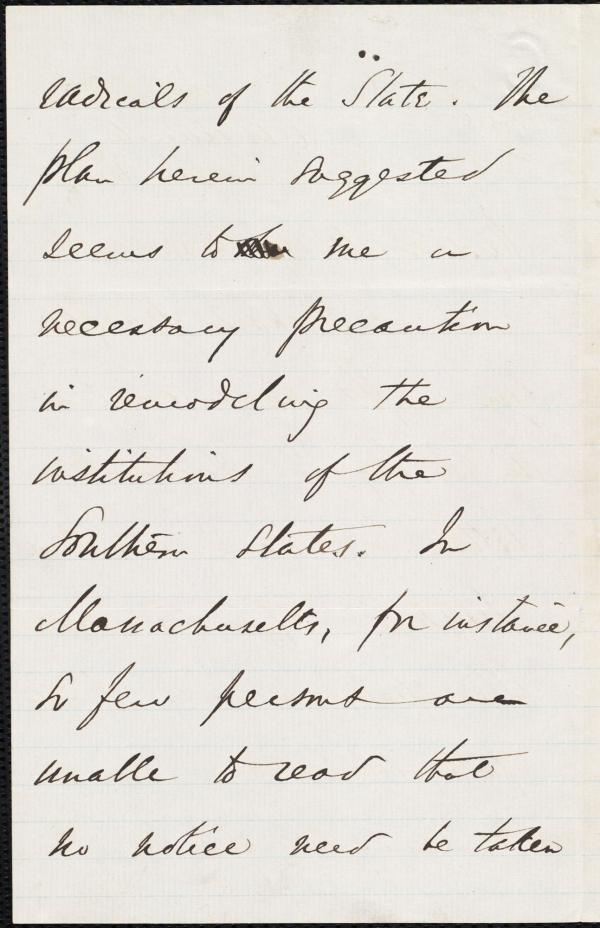 radicals of the State. The
plan herein suggested
seems to me a
necessary precaution
in remodeling the
institutions of the
Southern States. In
Massachusetts, for instance,
so few persons are
unable to read that
no notice need be taken